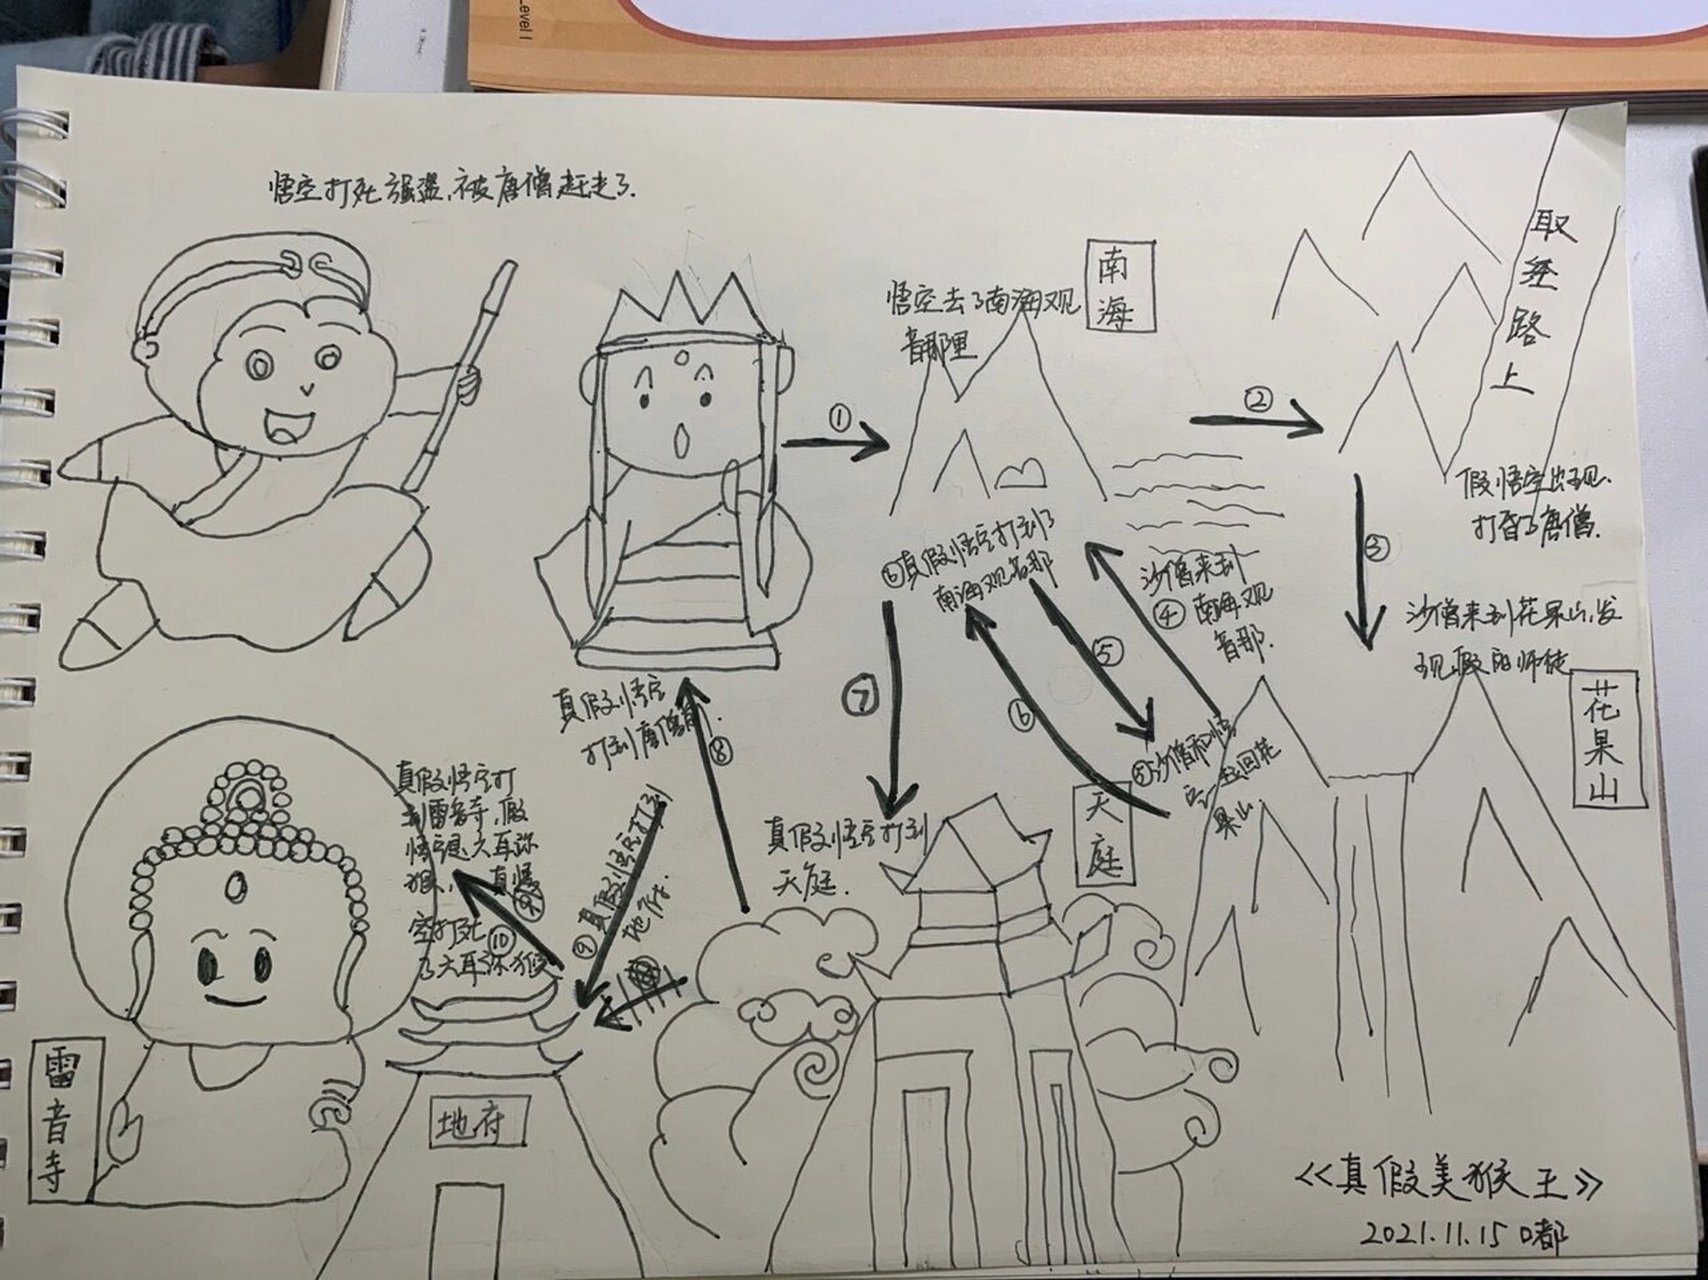 evel 1
悟空打死强盗,被唐僧赶走了.
①
悟空去了南海观
音那里
南
海
②
取
经
路
上
假悟空出现.
打昏了唐僧.
③
沙僧来到花果山,发
现假的师徒
花
果
山
沙僧来到
④南海观
音那.
⑤
⑤沙僧和悟
空一起回花
果山
⑥
⑥真假悟空打到了
南海观音那
⑦
真假悟空打到
天庭.
天
庭
⑧
真假悟空
打到唐僧前.
⑨真假悟空打到
地府.
地府
⑩
真假悟空打
到雷音寺,假
悟空是六耳弥
猴,真悟
空打死
了六耳弥猴
雷
音
寺
<<真假美猴王>>
2021.11.15 口都